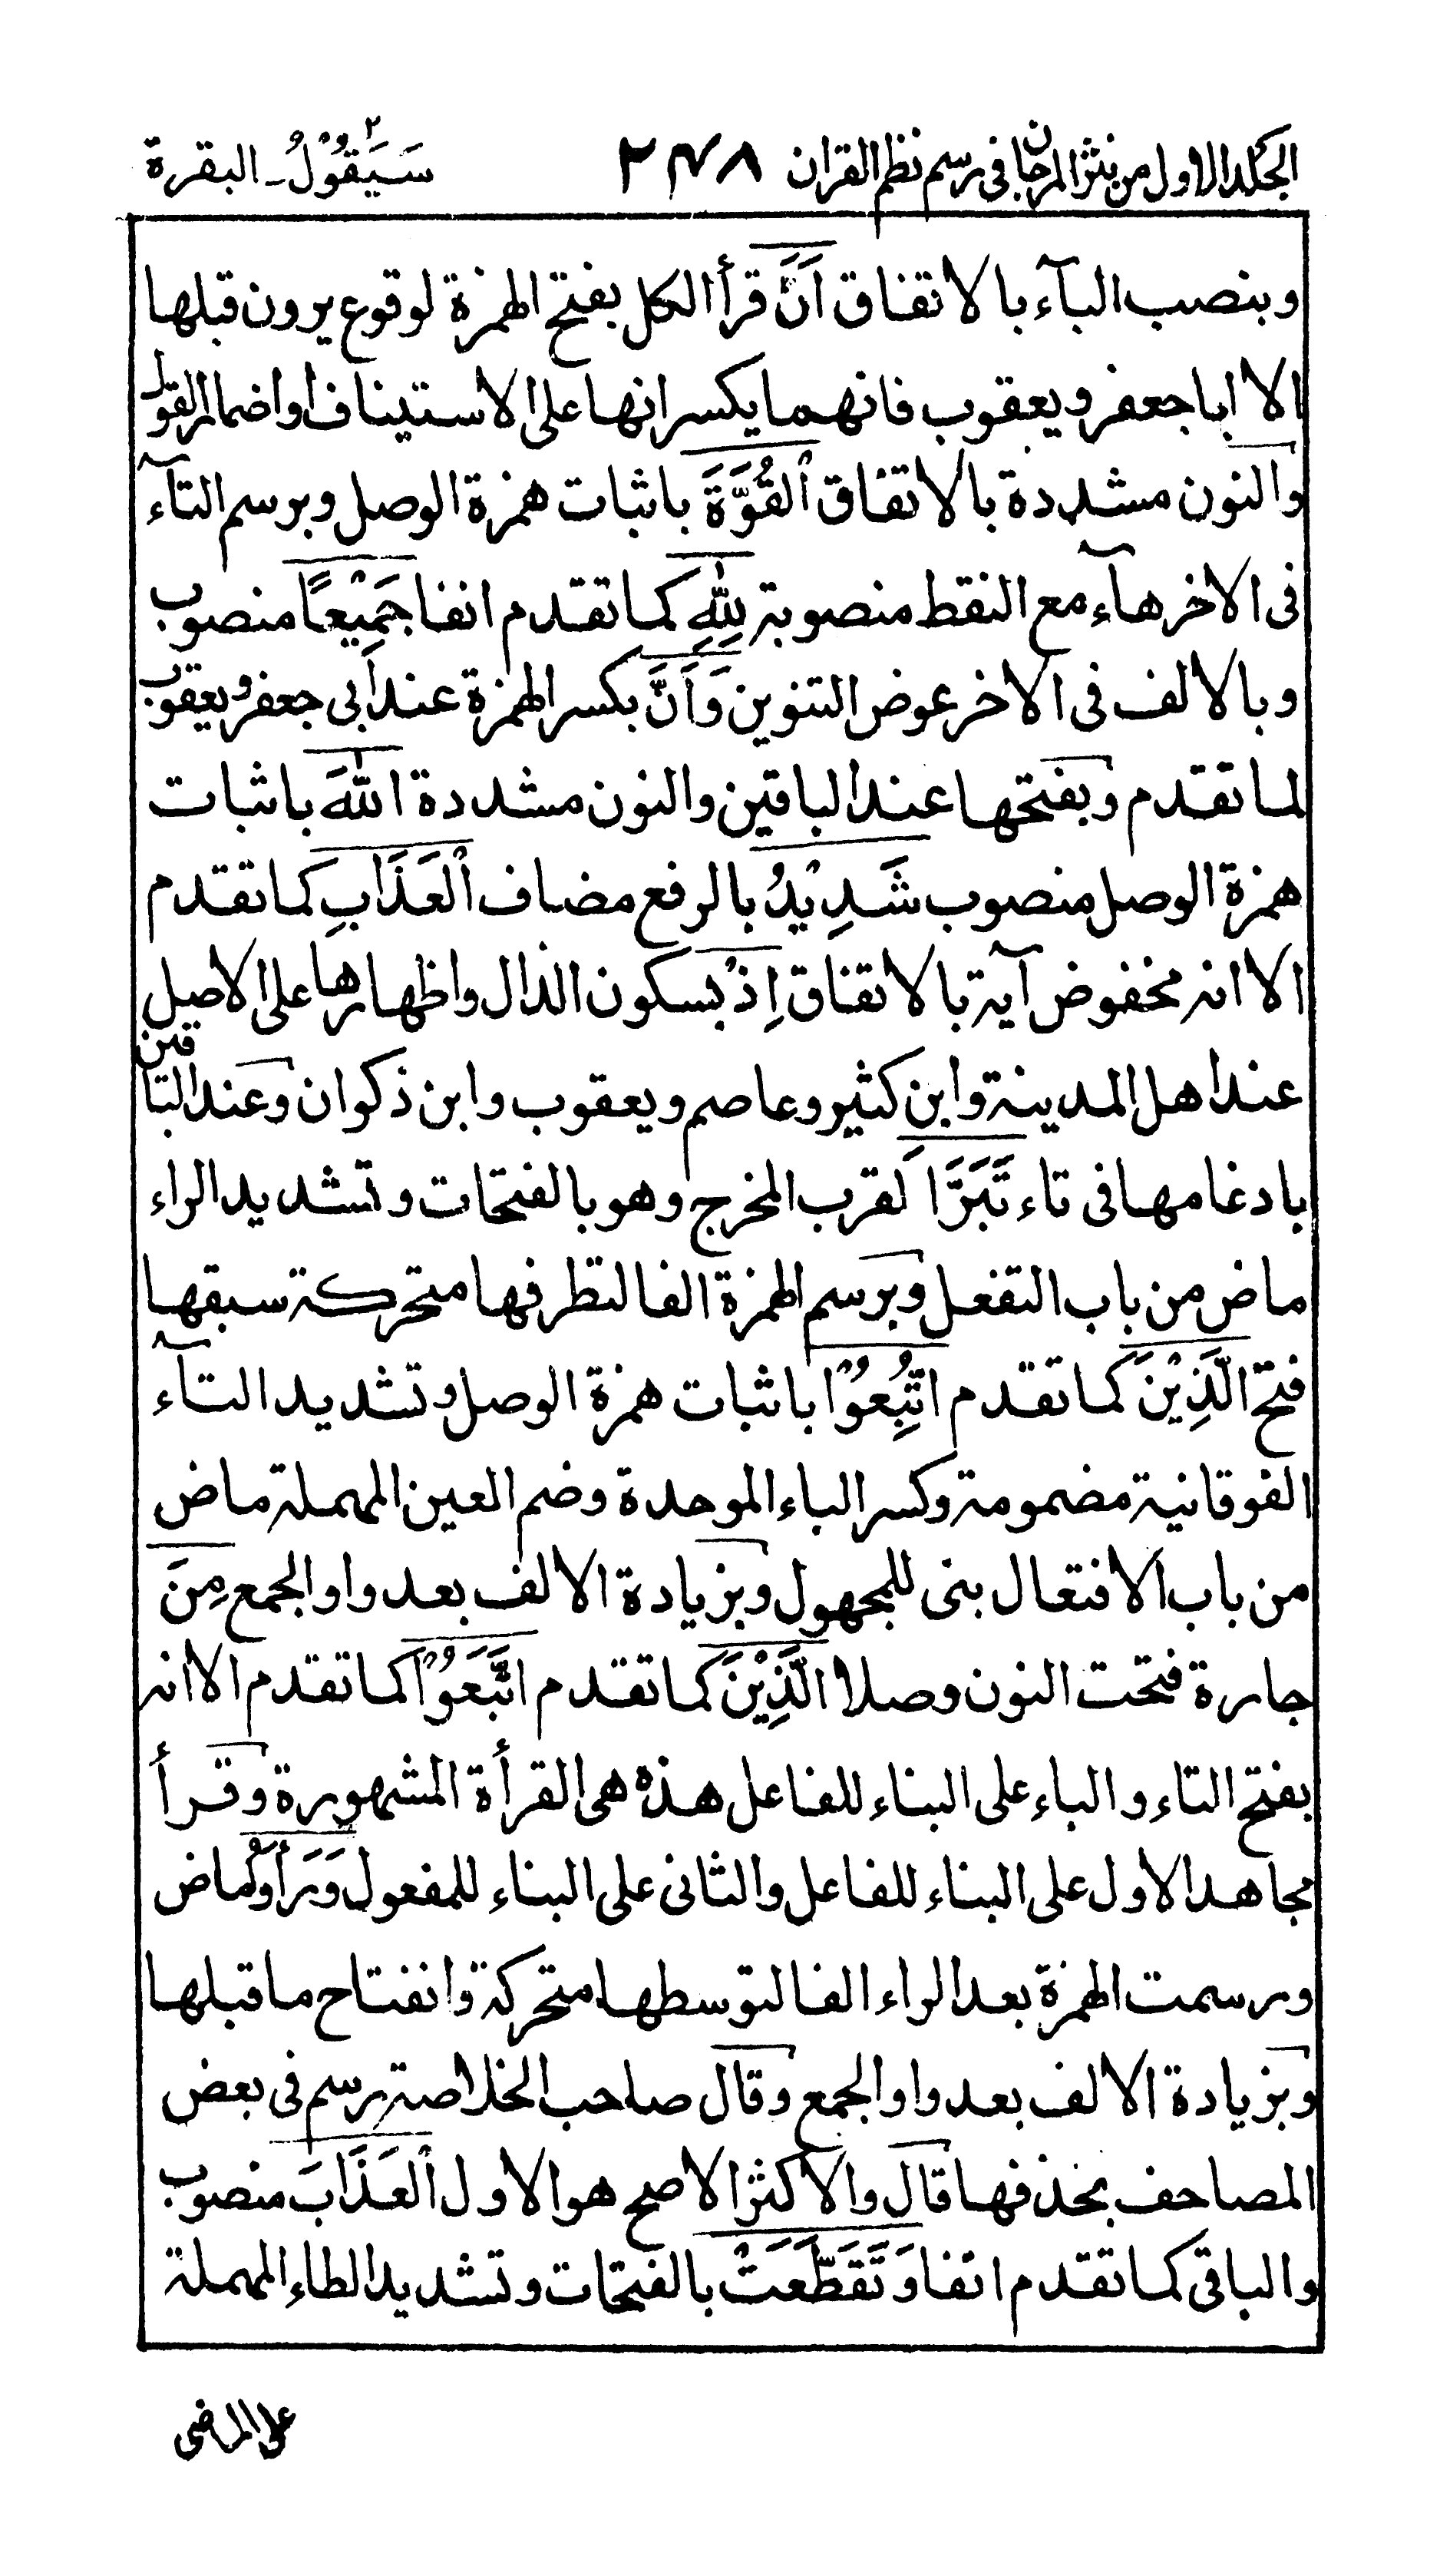 المجلد الاول من نثر المرجان فی رسم نظم القران ٢٤٨ سَيَقُوْلُ ٢ - البقرة
وبنصب البآء بالاتفاق اَنَّ قرأ الكل بفتح الهمزة لوقوع يرون قبلها
الا ابا جعفر ويعقوب فانهما يكسرانها على الاستيناف او اضمار القول
والنون مشددة بالاتفاق اَلْقُوَّةَ باثبات همزة الوصل وبرسم التآء
فی الاخر هآء مع النقط منصوبة لِلّٰهِ كما تقدم انفا جَمِيْعًا منصوب
وبالالف فی الاخر عوض التنوين وَاَنَّ بكسر الهمزة عند أبی جعفر ويعقوب
لما تقدم وبفتحها عند الباقين والنون مشددة اللّٰهَ باثبات
همزة الوصل منصوب شَدِيْدُ بالرفع مضاف الْعَذَابِ كما تقدم
الا انه مخفوض آية بالاتفاق اِذْ بسكون الذال واظهارها على الاصل
عند اهل المدينة وابن كثير وعاصم ويعقوب وابن ذكوان وعند الباقين
بادغامها فی تاء تَبَرَّاَ لقرب المخرج وهو بالفتحات وتشديد الراء
ماض من باب التفعل وبرسم الهمزة الفا لتطرفها متحركة سبقها
فتح الَّذِيْنَ كما تقدم اتُّبِعُوْا باثبات همزة الوصل وتشديد التآء
الفوقانية مضمومة وكسر الباء الموحدة وضم العين المهملة ماض
من باب الافتعال بنی للمجهول وبزيادة الالف بعد واو الجمع مِنَ
جارة فتحت النون وصلا الَّذِيْنَ كما تقدم اتَّبَعُوْا كما تقدم الا انه
بفتح التاء والباء على البناء للفاعل هذه هی القرأة المشهورة وقرأ
مجاهد الاول على البناء للفاعل والثانی على البناء للمفعول وَرَأَوُا ماض
ورسمت الهمزة بعد الراء الفا لتوسطها متحركة وانفتاح ما قبلها
وبزيادة الالف بعد واو الجمع وقال صاحب الخلاصة رسم فی بعض
المصاحف بحذفها قال والاكثر الاصح هو الاول الْعَذَابَ منصوب
والباقی كما تقدم انفا وَتَقَطَّعَتْ بالفتحات وتشديد الطاء المهملة
على الماضی